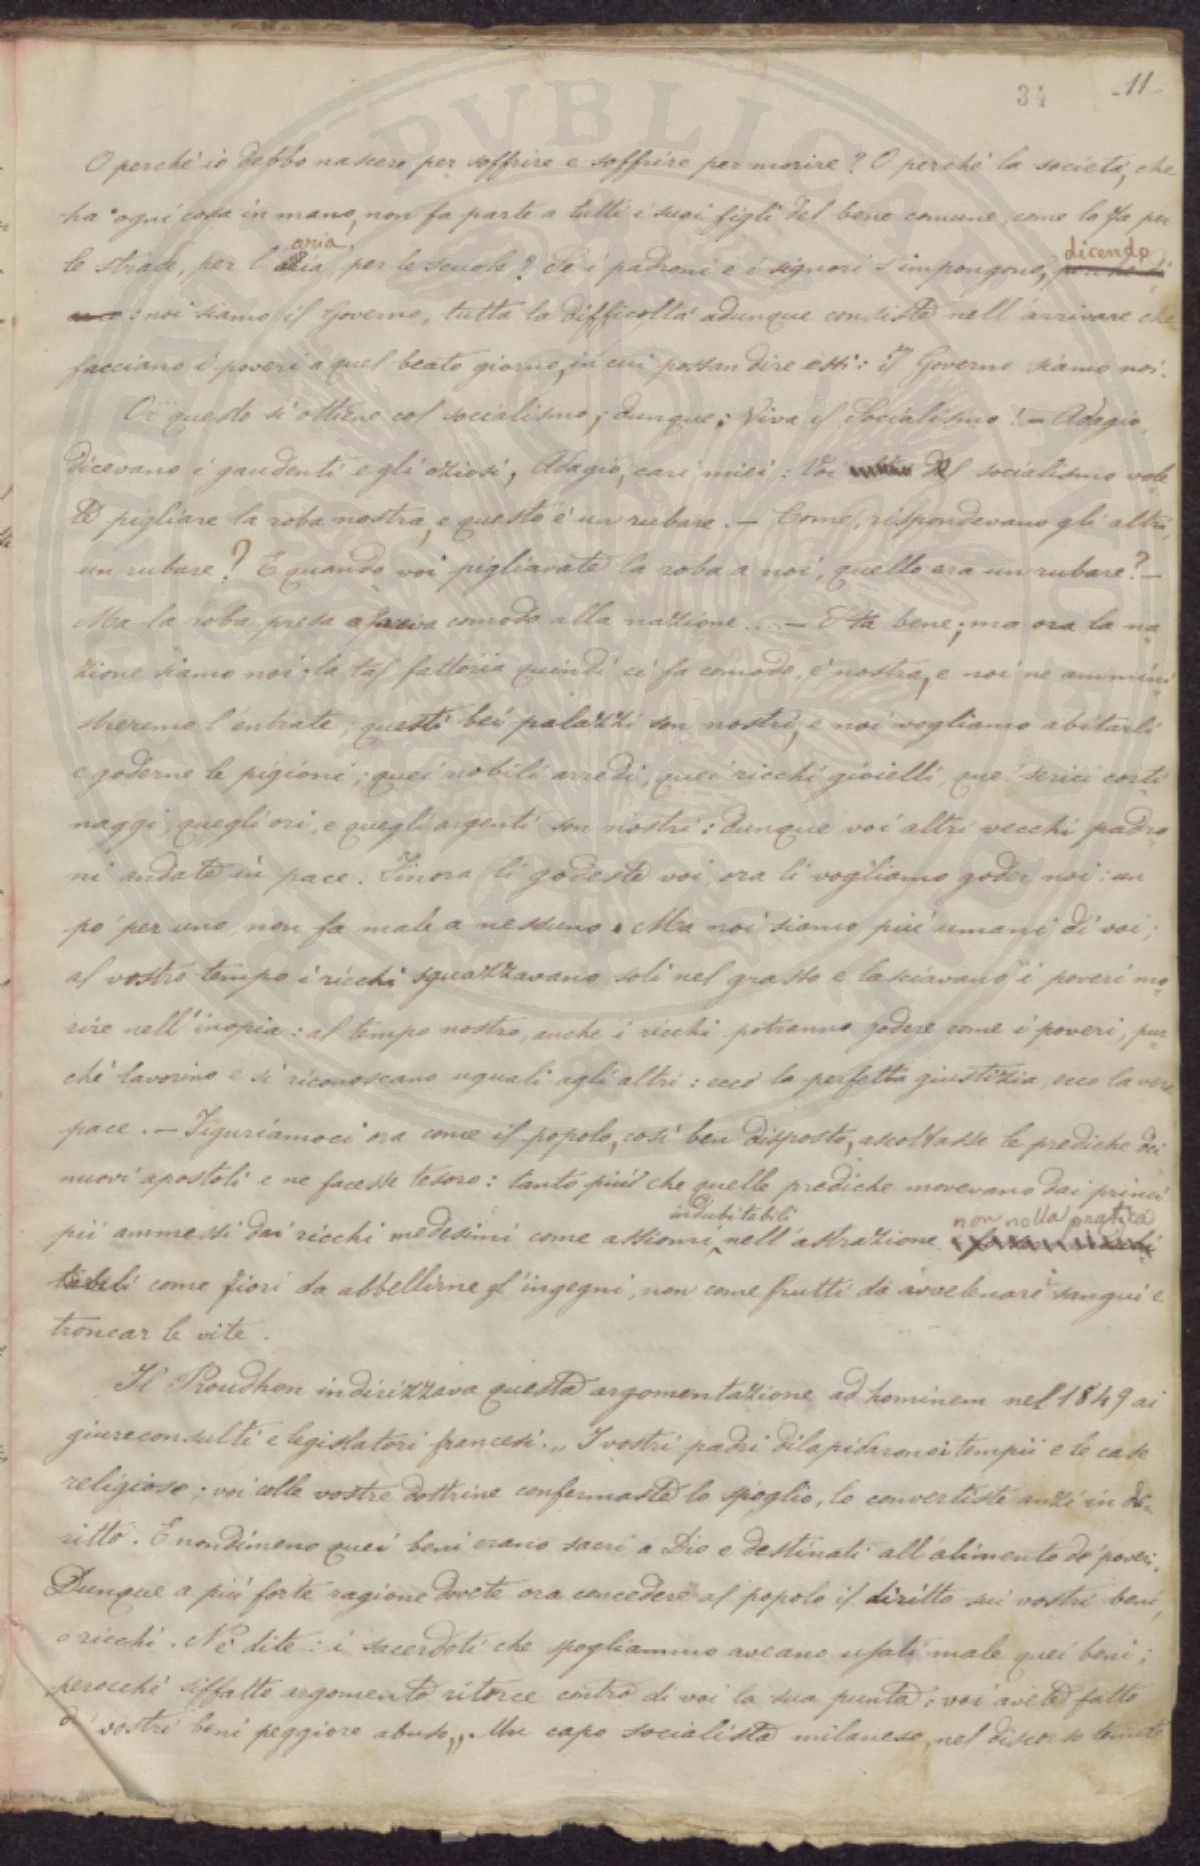 34 -11-
O perchè io debbo nascere per soffrire e soffrire per morire? O perchè la società, che
ha ogni cosa in mano, non fa parte a tutti i suoi figli del bene comune, come lo fa per
le strade, per l'aria, per le scuole? Se i padroni e i signori s'impongono, dicendo
: noi siamo il Governo, tutta la difficoltà adunque consiste nell'arrivare che
facciano i poveri a quel beato giorno, in cui possan dire essi: il Governo siamo noi.
Or questo si ottiene col socialismo; dunque: Viva il Socialismo! — Adagio,
dicevano i gaudenti e gli oziosi, Adagio, cari miei: Voi del socialismo vole-
te pigliare la roba nostra, e questo è un rubare. — Come, rispondevano gli altri,
un rubare? E quando voi pigliavate la roba a noi, quello era un rubare? —
Ma la roba presa faceva comodo alla nazione... — Sta bene; ma ora la na-
zione siamo noi; la tal fattoria quindi ci fa comodo, è nostra, e noi ne ammini-
streremo l'entrate; questi bei palazzi son nostri, e noi vogliamo abitarli
e goderne le pigioni; quei nobili arredi, quei ricchi gioielli, que' serici corti-
naggi, quegli ori, e quegli argenti son nostri: dunque voi altri vecchi padro-
ni andate in pace. Finora li godeste voi, ora li vogliamo goder noi: un
pò per uno non fa male a nessuno. Ma noi siamo più umani di voi;
al vostro tempo i ricchi sguazzavano soli nel grasso e lasciavano i poveri mo-
rire nell'inopia: al tempo nostro, anche i ricchi potranno godere come i poveri, pur-
chè lavorino e si riconoscano uguali agli altri: ecco la perfetta giustizia, ecco la vera
pace. — Figuriamoci ora come il popolo, così ben disposto, ascoltasse le prediche dei
nuovi apostoli e ne facesse tesoro: tanto più che quelle prediche movevano dai princi-
pii ammessi dai ricchi medesimi come assiomi indubitabili nell'astrazione non nella pratica
come fiori da abbellirne gl'ingegni, non come frutti da avvelenare i sangui e
troncar le vite.
Il Proudhon indirizzava questa argomentazione ad hominem nel 1849 ai
giureconsulti e legislatori francesi. „ I vostri padri dilapidarono i tempii e le case
religiose; voi colle vostre dottrine confermaste lo spoglio, lo convertiste anzi in di-
ritto. E nondimeno quei beni erano sacri a Dio e destinati all'alimento de' poveri.
Dunque a più forte ragione dovete ora concedere al popolo il diritto sui vostri beni,
o ricchi. Nè dite: i sacerdoti che spogliammo aveano usati male quei beni;
perocchè siffatto argomento ritorce contro di voi la sua punta: voi avete fatto
d' vostri beni peggiore abuso „. Un capo socialista milanese, nel discorso tenuto